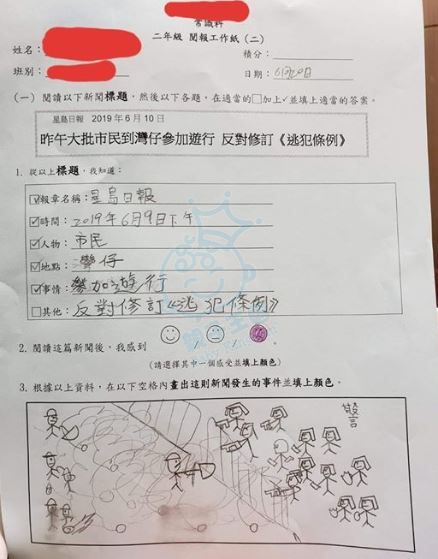 常識科
二年級 閱報工作紙（二）
姓名：
積分：
班別：
日期：
（一）閱讀以下新聞標題，在適當的□加上✓並填上適當的答案。
星島日報 2019 年 6 月 10 日
昨午大批市民到灣仔參加遊行 反對修訂《逃犯條例》
1. 從以上標題，我知道：
☑報章名稱：星島日報
☑時間：2019年6月9日下午
☑人物：市民
☑地點：灣仔
☑事情：參加遊行
□其他：反對修訂《逃犯條例》
2. 閱讀這篇新聞後，我感到
（請選擇其中一個感受並填上顏色）
3. 根據以上資料，在以下空格內畫出這則新聞發生的事件並填上顏色。